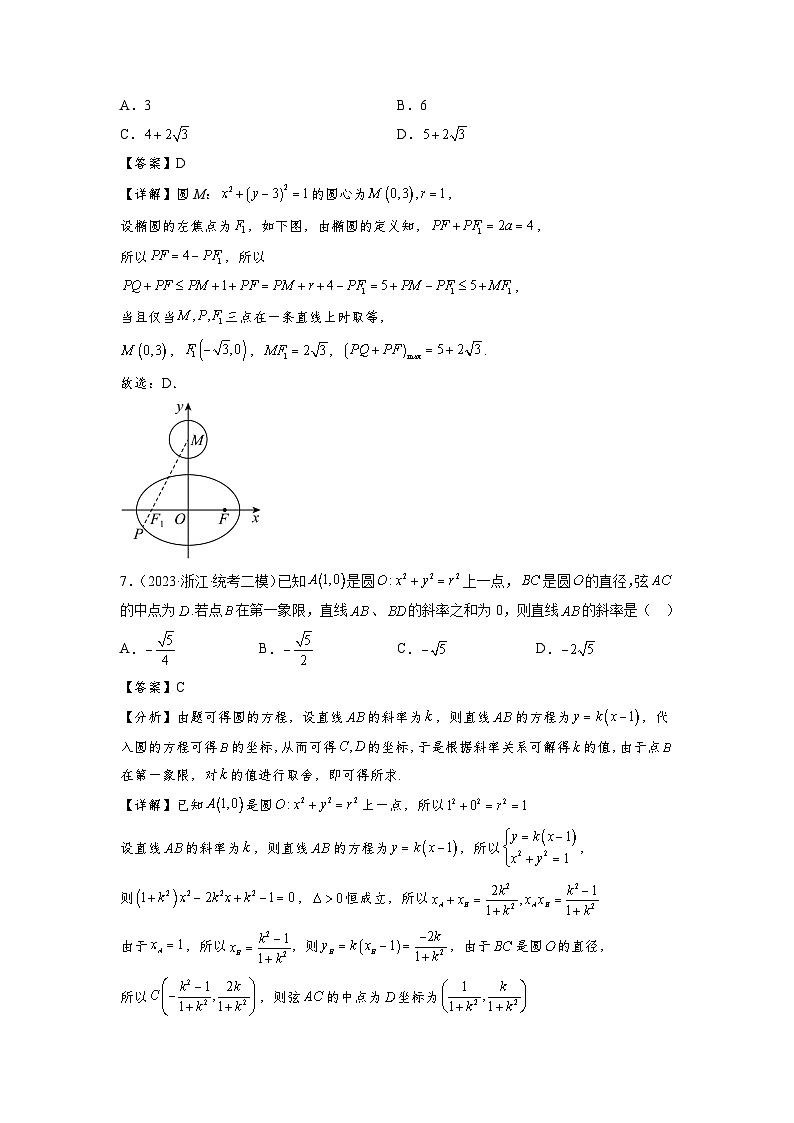 A．3 B．6
C．4+2√3 D．5+2√3
【答案】D
【详解】圆 M：x²+(y−3)²=1的圆心为M(0,3),r=1，
设椭圆的左焦点为F₁，如下图，由椭圆的定义知，PF+PF₁=2a=4，
所以PF=4−PF₁，所以
PQ+PF≤PM+1+PF=PM+r+4−PF₁=5+PM−PF₁≤5+MF₁，
当且仅当M,P,F₁三点在一条直线上时取等，
M(0,3)，F₁(−√3,0)，MF₁=2√3，(PQ+PF)max=5+2√3．
故选：D．
y
M
F₁ O F x
P
7.（2023·浙江·统考二模）已知A(1,0)是圆O:x²+y²=r²上一点，BC是圆O的直径，弦AC
的中点为D.若点B在第一象限，直线AB、BD的斜率之和为0，则直线AB的斜率是（ ）
A．−√5/4 B．−√5/2 C．−√5 D．−2√5
【答案】C
【分析】由题可得圆的方程，设直线AB的斜率为k，则直线AB的方程为y=k(x−1)，代
入圆的方程可得B的坐标，从而可得C,D的坐标，于是根据斜率关系可解得k的值，由于点B
在第一象限，对k的值进行取舍，即可得所求.
【详解】已知A(1,0)是圆O:x²+y²=r²上一点，所以1²+0²=r²=1
设直线AB的斜率为k，则直线AB的方程为y=k(x−1)，所以{y=k(x−1) x²+y²=1，
则(1+k²)x²−2k²x+k²−1=0，Δ>0恒成立，所以x_A+x_B=2k²/(1+k²),x_Ax_B=(k²−1)/(1+k²)
由于x_A=1，所以x_B=(k²−1)/(1+k²)，则y_B=k(x_B−1)=−2k/(1+k²)，由于BC是圆O的直径，
所以C(−(k²−1)/(1+k²),2k/(1+k²))，则弦AC的中点为D坐标为(1/(1+k²),k/(1+k²))